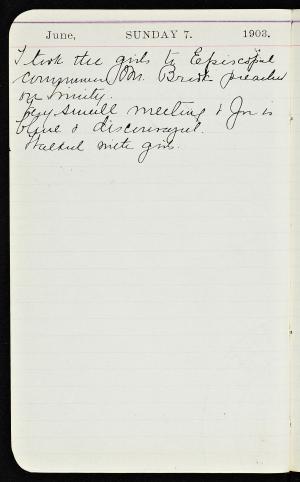 June, SUNDAY 7. 1903.
I took the girls to Episcopal
communion Mr. Brook preached
on Trinity.
Very small meeting & Jno is
blue & discouraged.
Walked with girls.